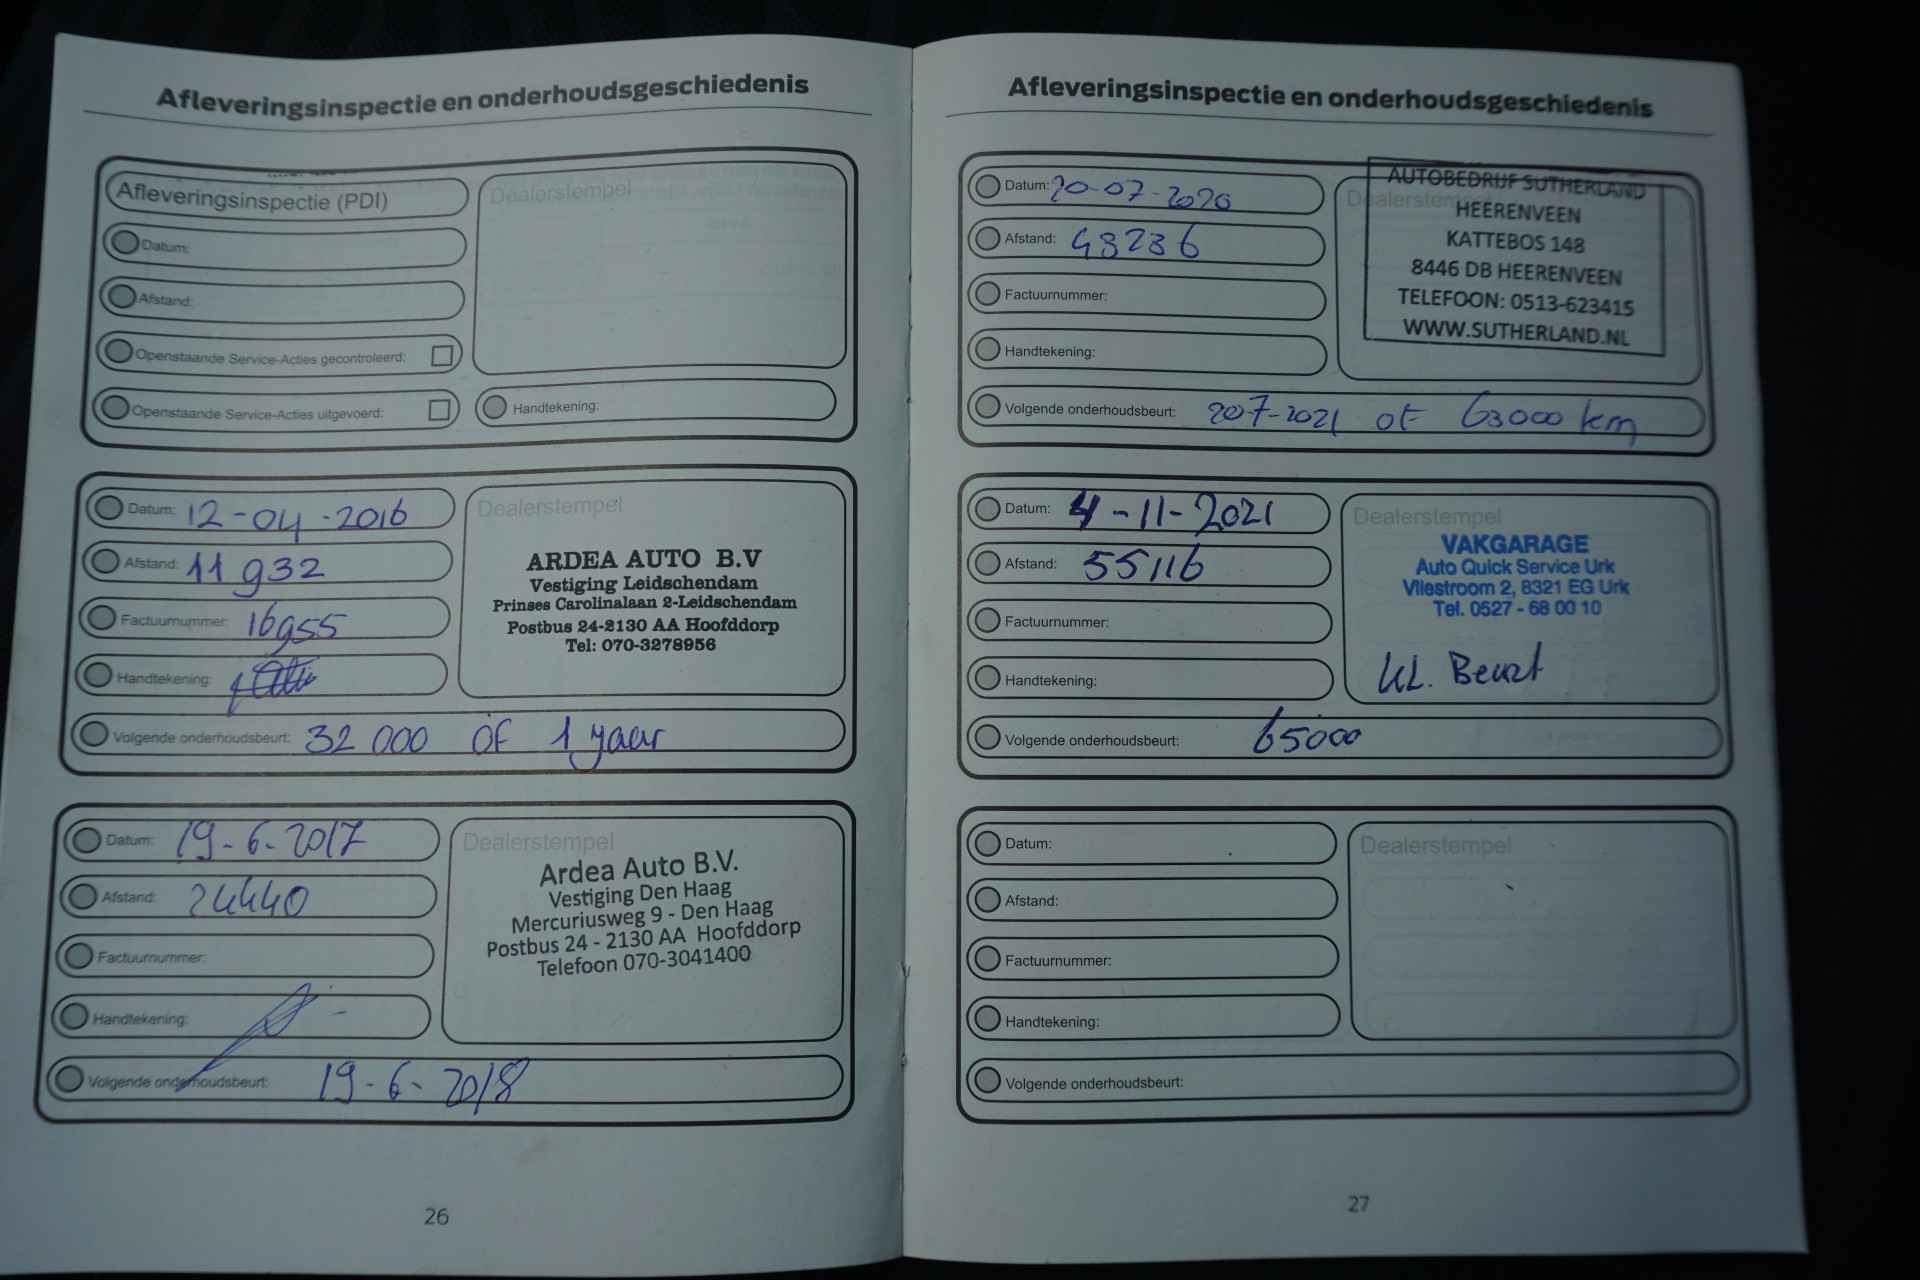 Afleveringsinspectie en onderhoudsgeschiedenis
Afleveringsinspectie (PDI)
Datum:
Afstand:
Openstaande Service-Acties gecontroleerd:
Openstaande Service-Acties uitgevoerd:
Dealerstempel
Handtekening:
Datum: 12-04-2016
Afstand: 11932
Factuurnummer: 16955
Handtekening:
Volgende onderhoudsbeurt: 32 000 OF 1 jaar
Dealerstempel
ARDEA AUTO B.V
Vestiging Leidschendam
Prinses Carolinalaan 2-Leidschendam
Postbus 24-2130 AA Hoofddorp
Tel: 070-3278956
Datum: 19-6-2017
Afstand: 24440
Factuurnummer:
Handtekening:
Volgende onderhoudsbeurt: 19-6-2018
Dealerstempel
Ardea Auto B.V.
Vestiging Den Haag
Mercuriusweg 9 - Den Haag
Postbus 24 - 2130 AA Hoofddorp
Telefoon 070-3041400
26
Afleveringsinspectie en onderhoudsgeschiedenis
Datum: 20-07-2020
Afstand: 48236
Factuurnummer:
Handtekening:
Volgende onderhoudsbeurt: 207-2021 of 63000 km
Dealerstempel
AUTOBEDRIJF SUTHERLAND
HEERENVEEN
KATTEBOS 148
8446 DB HEERENVEEN
TELEFOON: 0513-623415
WWW.SUTHERLAND.NL
Datum: 4-11-2021
Afstand: 55116
Factuurnummer:
Handtekening:
Volgende onderhoudsbeurt: 65000
Dealerstempel
VAKGARAGE
Auto Quick Service Urk
Vliestroom 2, 8321 EG Urk
Tel. 0527 - 68 00 10
KL. Beurt
Datum:
Afstand:
Factuurnummer:
Handtekening:
Volgende onderhoudsbeurt:
Dealerstempel
27